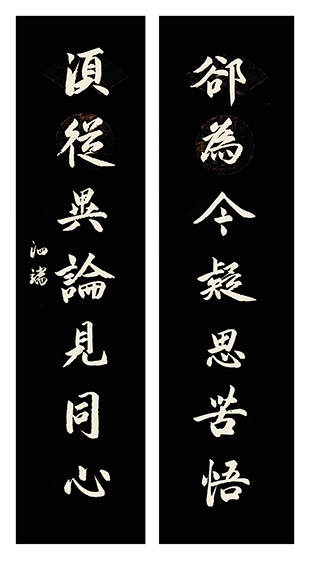 郤為今疑思苦悟
湏從異論見同心
泗